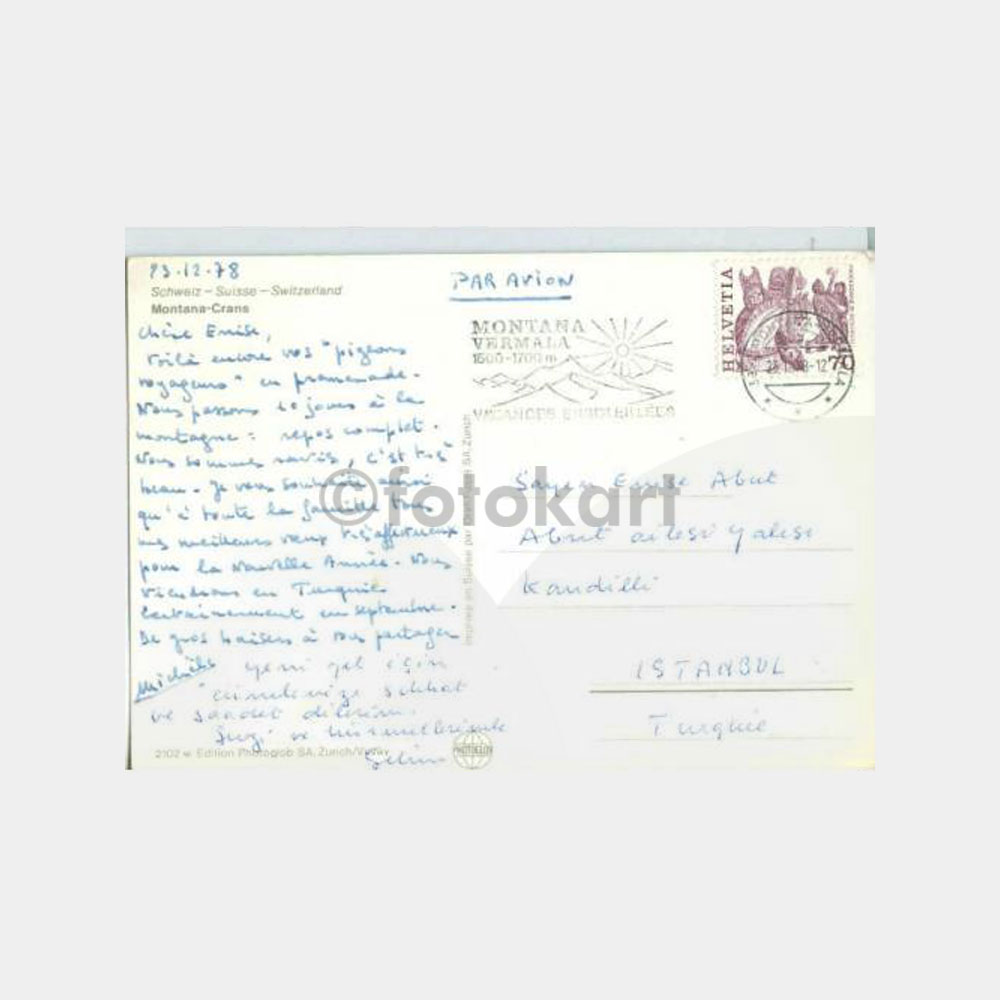 23-12-78
Schweiz – Suisse – Switzerland
Montana-Crans
Chère Emise,
Voilà encore vos "pigeons
voyageurs" en promenade.
Nous passons 10 jours à la
montagne : repos complet.
Nous sommes ravis, c'est très
beau. Je vous souhaite ainsi
qu'à toute la famille tous
mes meilleurs vœux très affectueux
pour la Nouvelle Année. Nous
viendrons en Turquie
certainement en septembre.
De gros baisers à vous partager
Michèle
yeni yıl için
cümlenize sıhhat
ve saadet dilerim.
ve hürmetlerimle
Selim
2102 w Edition Photoglob SA, Zürich/Vevey
PHOTOGLOB
PAR AVION
MONTANA
VERMALA
1500-1700 m
VACANCES ENSOLEILLÉES
HELVETIA
70
Imprimé en Suisse par SA, Zurich
Sayın Emise Abut
Abut ailesi yalısı
Kandilli
ISTANBUL
Turquie
©fotokart